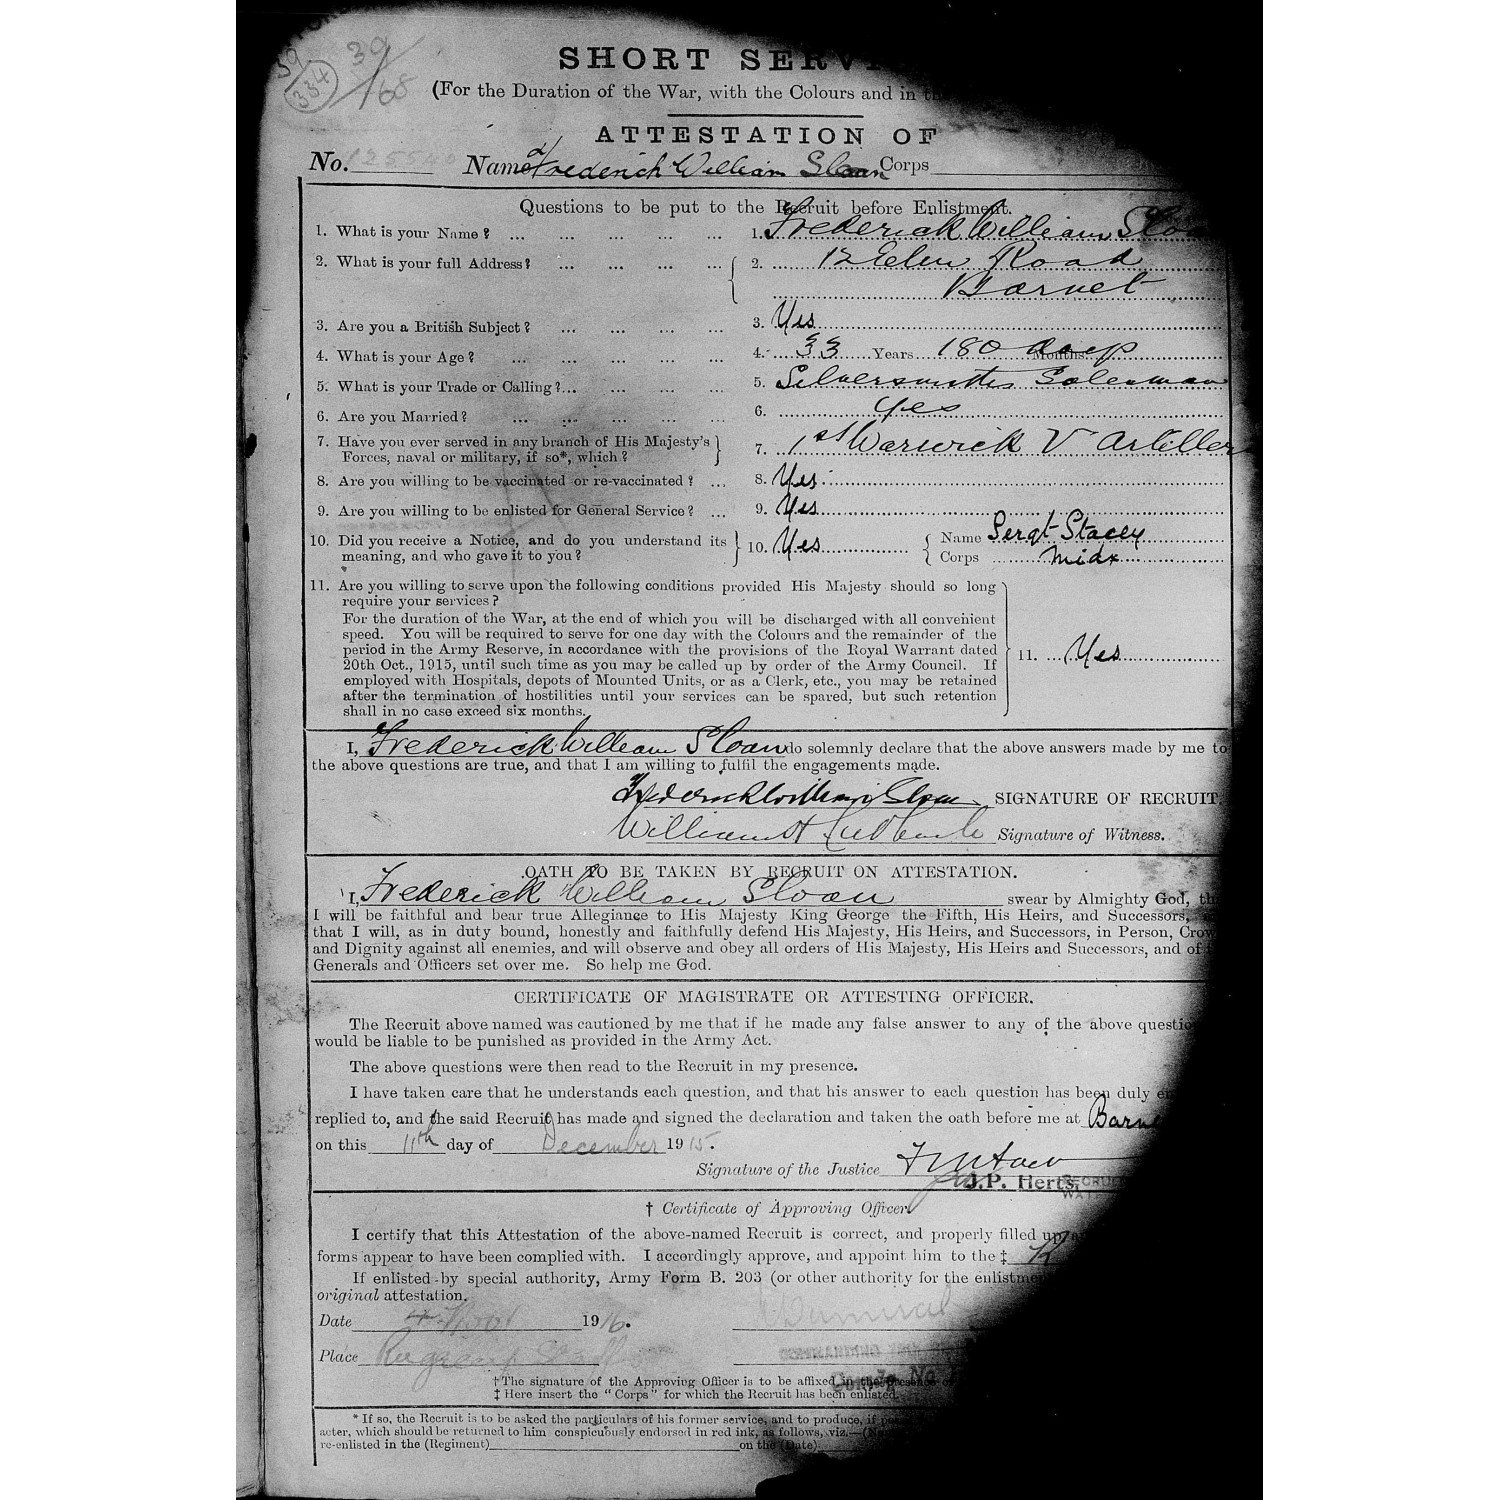 39
334
39/68
SHORT SERV
(For the Duration of the War, with the Colours and in th
ATTESTATION OF
No. 125540 Name Frederick William Sloan Corps
Questions to be put to the Recruit before Enlistment.
1. What is your Name? ... ... ... ... ... 1. Frederick William Sloa
2. What is your full Address? ... ... ... ... { 2. 12 Road
Barnet
3. Are you a British Subject? ... ... ... ... 3. Yes
4. What is your Age? ... ... ... ... 4. 33 Years 180 days Months
5. What is your Trade or Calling?... ... ... ... 5. Silversmiths Salesman
6. Are you Married? ... ... ... ... 6. Yes
7. Have you ever served in any branch of His Majesty's
Forces, naval or military, if so*, which? } 7. 1st Warwick V Artiller
8. Are you willing to be vaccinated or re-vaccinated? ... 8. Yes
9. Are you willing to be enlisted for General Service? ... 9. Yes
10. Did you receive a Notice, and do you understand its
meaning, and who gave it to you? } 10. Yes { Name Sergt Stacey
Corps Midx
11. Are you willing to serve upon the following conditions provided His Majesty should so long
require your services?
For the duration of the War, at the end of which you will be discharged with all convenient
speed. You will be required to serve for one day with the Colours and the remainder of the
period in the Army Reserve, in accordance with the provisions of the Royal Warrant dated
20th Oct., 1915, until such time as you may be called up by order of the Army Council. If
employed with Hospitals, depots of Mounted Units, or as a Clerk, etc., you may be retained
after the termination of hostilities until your services can be spared, but such retention
shall in no case exceed six months.
11. Yes
I, Frederick William Sloan do solemnly declare that the above answers made by me to
the above questions are true, and that I am willing to fulfil the engagements made.
Frederick William Sloan SIGNATURE OF RECRUIT.
William H Signature of Witness.
OATH TO BE TAKEN BY RECRUIT ON ATTESTATION.
I, Frederick William Sloan swear by Almighty God, th
I will be faithful and bear true Allegiance to His Majesty King George the Fifth, His Heirs, and Successors,
that I will, as in duty bound, honestly and faithfully defend His Majesty, His Heirs, and Successors, in Person, Crow
and Dignity against all enemies, and will observe and obey all orders of His Majesty, His Heirs and Successors, and of
Generals and Officers set over me. So help me God.
CERTIFICATE OF MAGISTRATE OR ATTESTING OFFICER.
The Recruit above named was cautioned by me that if he made any false answer to any of the above questio
would be liable to be punished as provided in the Army Act.
The above questions were then read to the Recruit in my presence.
I have taken care that he understands each question, and that his answer to each question has been duly en
replied to, and the said Recruit has made and signed the declaration and taken the oath before me at Barne
on this 11th day of December 1915.
Signature of the Justice
J.P. Herts.
† Certificate of Approving Officer
I certify that this Attestation of the above-named Recruit is correct, and properly filled up, a
forms appear to have been complied with. I accordingly approve, and appoint him to the ‡ R
If enlisted by special authority, Army Form B. 203 (or other authority for the enlistme
original attestation.
Date 4 Nov 1916.
Place Rugeley
† The signature of the Approving Officer is to be affixed in the presence of
‡ Here insert the "Corps" for which the Recruit has been enlisted.
* If so, the Recruit is to be asked the particulars of his former service, and to produce, if po
acter, which should be returned to him conspicuously endorsed in red ink, as follows, viz.—(N
re-enlisted in the (Regiment) on the (Date)